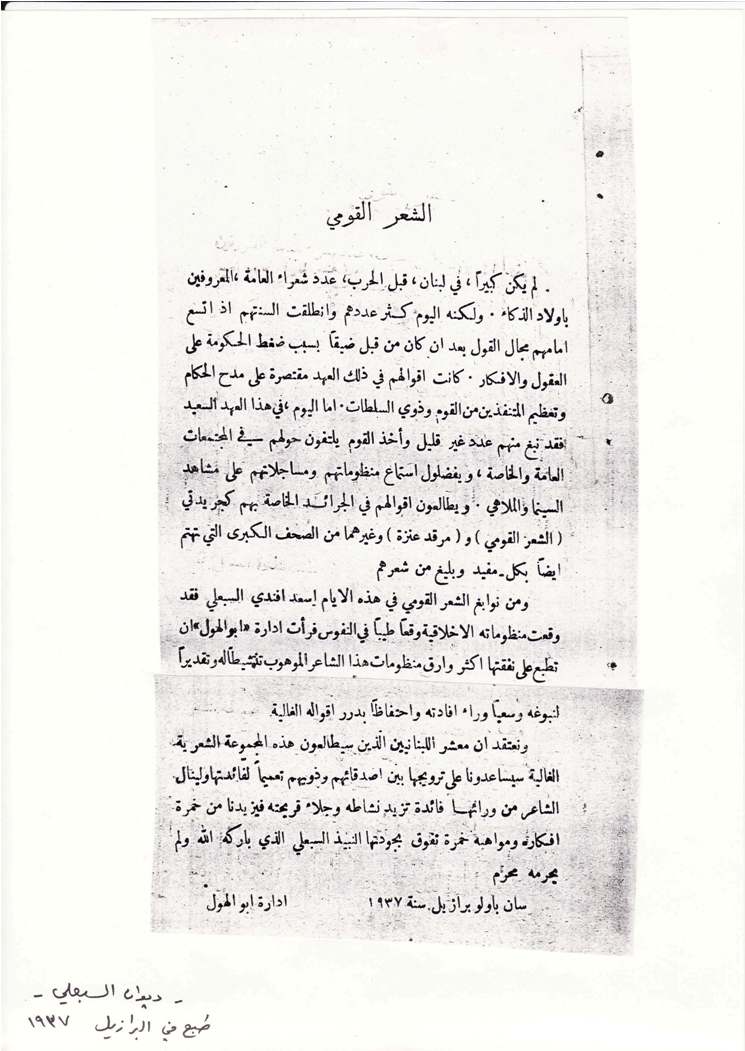 الشعر القومي
لم يكن كبيراً ، في لبنان ، قبل الحرب، عدد شعراء العامة ،المعروفين
باولاد الذكاء . ولكنه اليوم كثر عددهم وانطلقت السنتهم اذ اتسع
امامهم مجال القول بعد ان كان من قبل ضيقاً بسبب ضغط الحكومة على
العقول والافكار . كانت اقوالهم في ذلك العهد مقتصرة على مدح الحكام
وتعظيم المتنفذين من القوم وذوي السلطات . اما اليوم ،في هذا العهد السعيد
فقد نبغ منهم عدد غير قليل وأخذ القوم يلتفون حولهم في المجتمعات
العامة والخاصة ، ويفضلول استماع منظوماتهم ومساجلاتهم على مشاهد
السينما والملاهي . ويطالعون اقوالهم في الجرائد الخاصة بهم كجريدتي
( الشعر القومي ) و ( مرقد عنزة ) وغيرهما من الصحف الكبرى التي تهتم
ايضاً بكل مفيد وبليغ من شعرهم
ومن نوابغ الشعر القومي في هذه الايام اسعد افندي السبعلي فقد
وقعت منظوماته الاخلاقية وقعاً طيباً في النفوس فرأت ادارة «ابو الهول» ان
تطبع على نفقتها اكثر وارق منظومات هذا الشاعر الموهوب تنشيطاً له وتقديراً
لنبوغه وسعياً وراء افادته واحتفاظاً بدرر اقواله الغالية
ونعتقد ان معشر اللبنانيين الذين سيطالعون هذه المجموعة الشعرية
الغالية سيساعدونا على ترويجها بين اصدقائهم وذويهم تعميماً لفائدتها ولينال
الشاعر من ورائها فائدة تزيد نشاطه وجلاء قريحته فيزيدنا من خمرة
افكاره ومواهبه خمرة تفوق بجودتها النبيذ السبعلي الذي باركه الله ولم
يحرمه محرم
سان باولو برازيل. سنة ١٩٣٧ ادارة ابو الهول
- ديوان السبعلي -
طبع في البرازيل ١٩٣٧